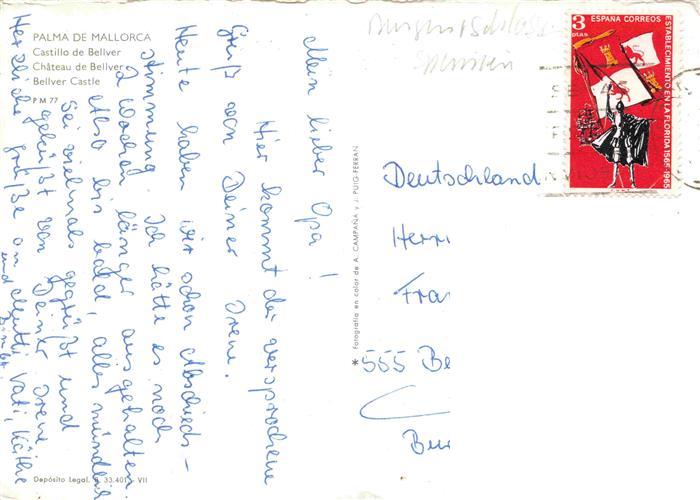 PALMA DE MALLORCA
Castillo de Bellver
Château de Bellver
Bellver Castle
P M 77
Mein lieber Opa!
Hier kommt der versprochene
Gruß von Deiner Irene.
Heute haben wir schon Abschieds-
stimmung. Ich hätte es noch
2 Wochen länger ausgehalten.
Also bis bald, alles mündlich
Sei vielmals gegrüßt und
geküßt von Deiner Irene
Herzliche Grüße an Mutti, Vati, Käthe
und
Depósito Legal. B. 33.401 - VII
Fotografía en color de A. CAMPAÑA y J. PUIG-FERRAN
3
ptas
ESPAÑA CORREOS
ESTABLECIMIENTO EN LA FLORIDA 1565-1965
Deutschland
Herrn
Fra
* 555 Be
Bur